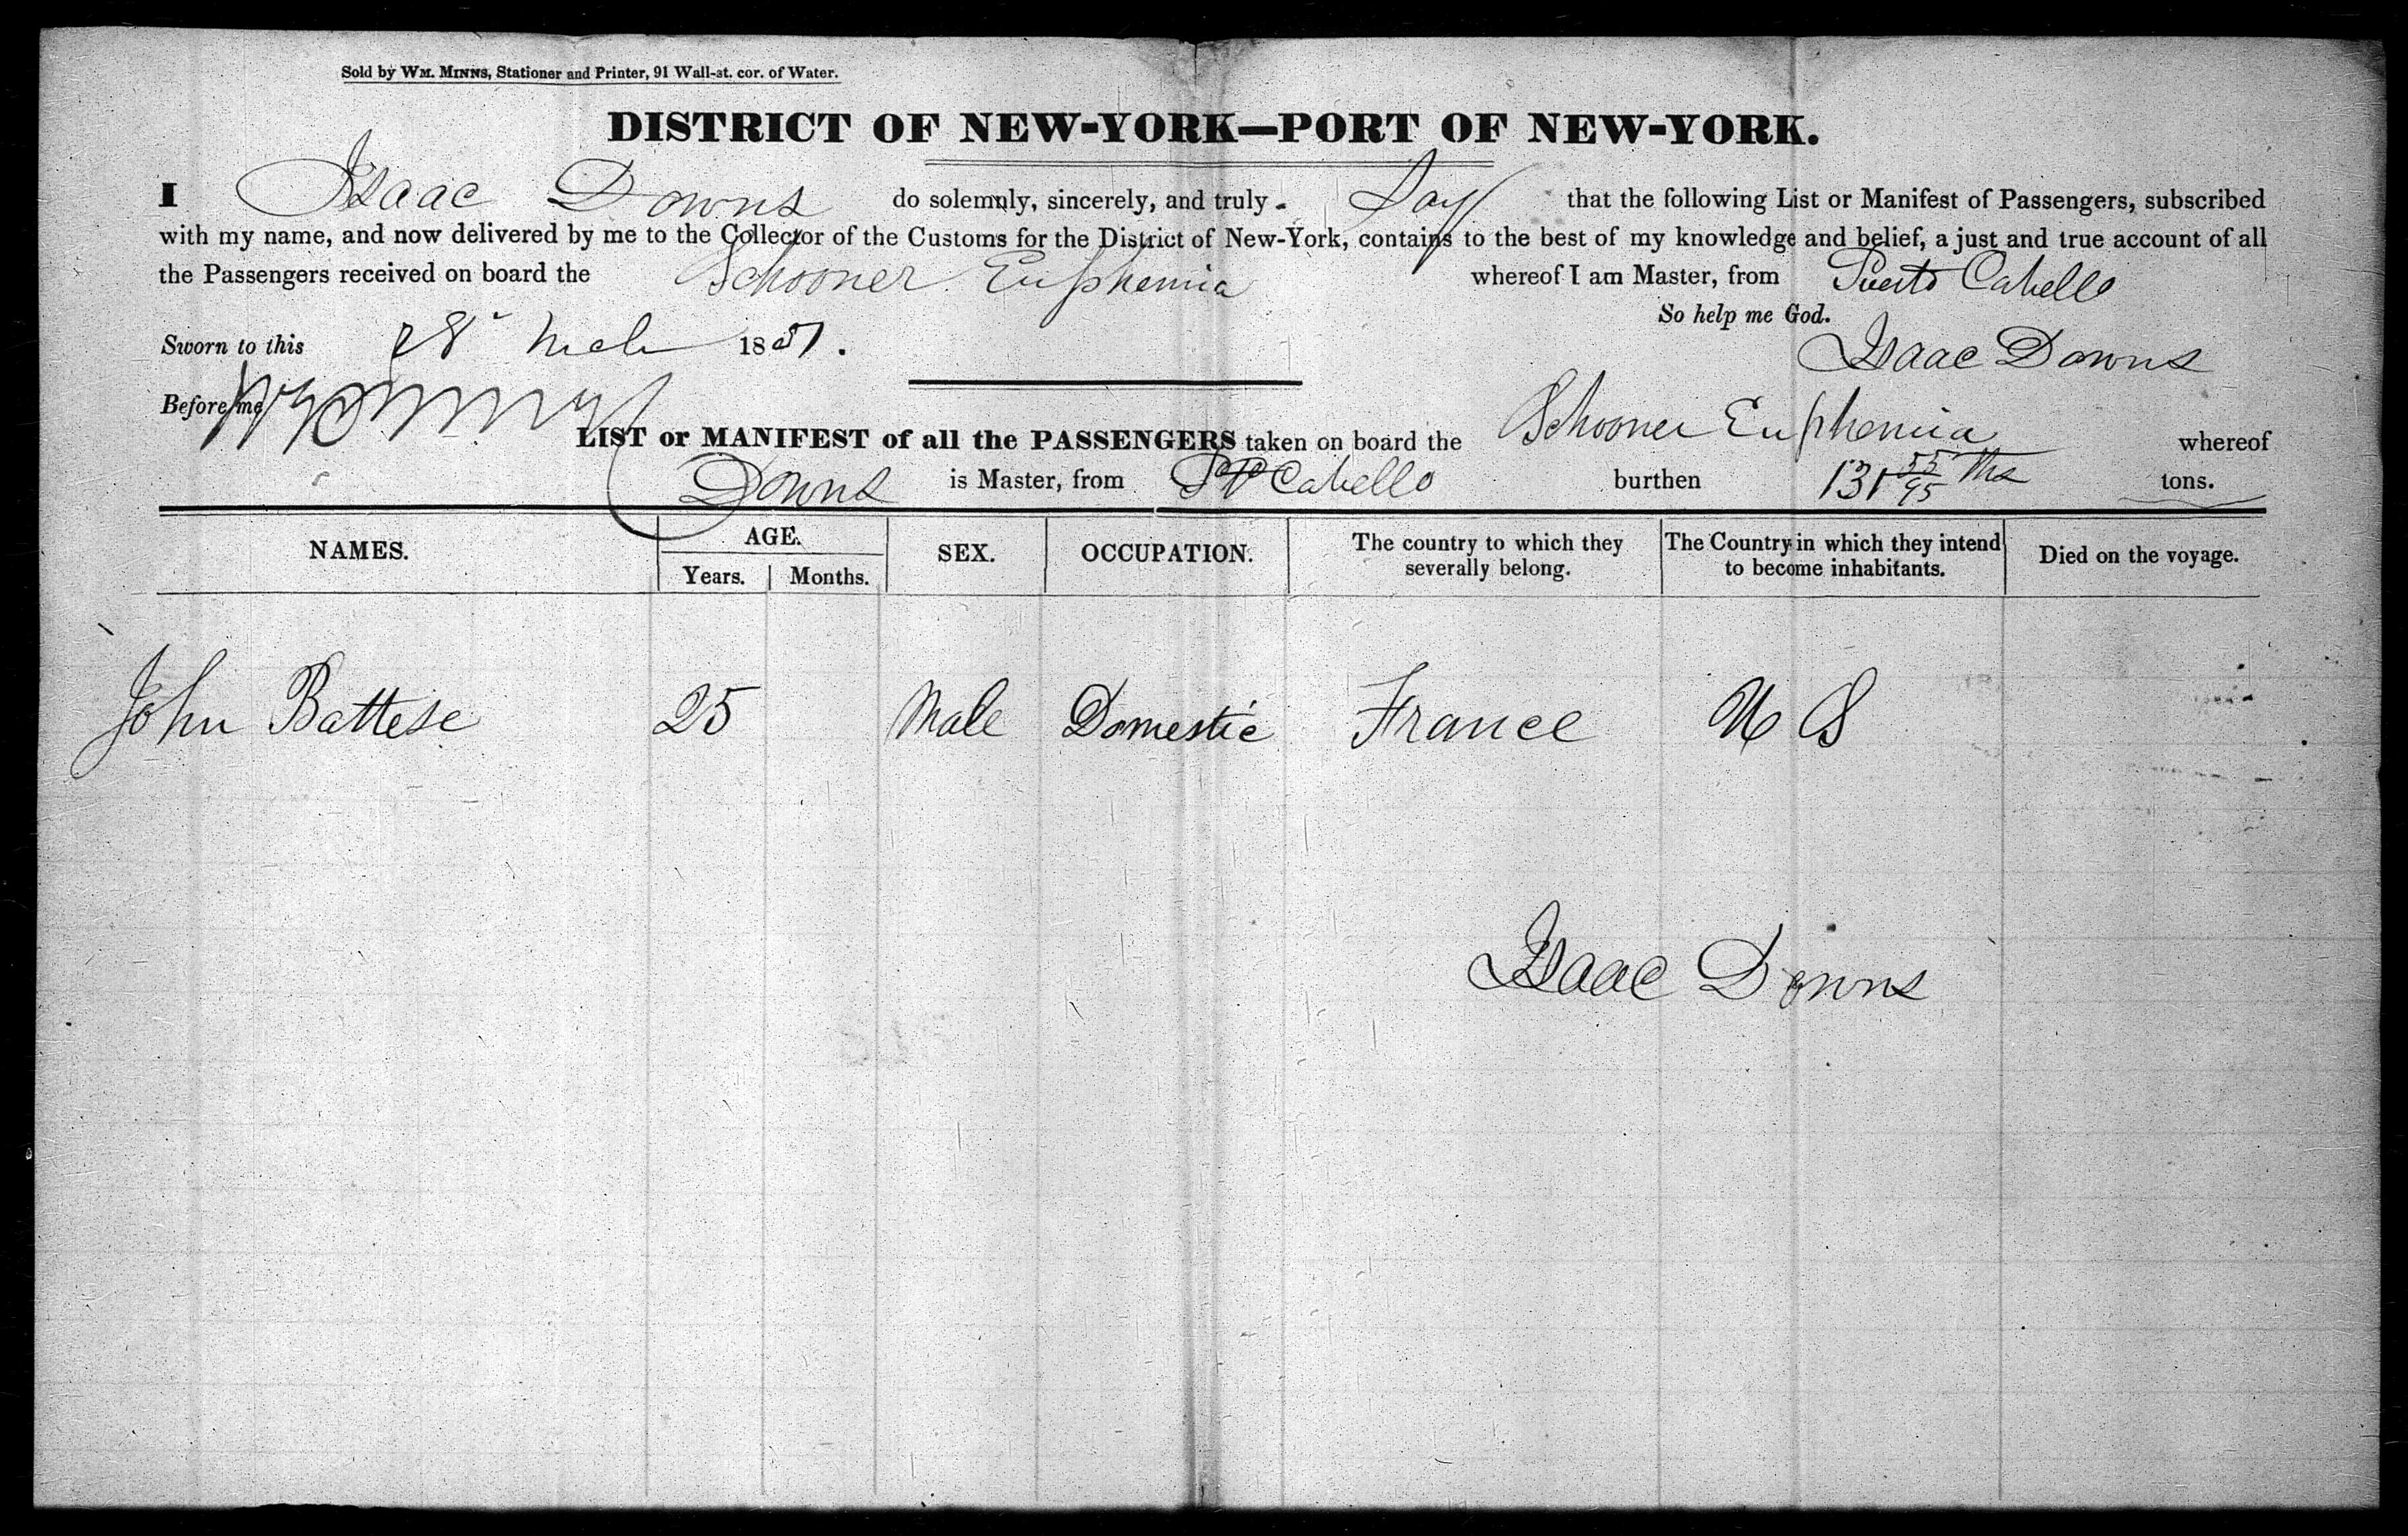 Sold by WM. MINNS, Stationer and Printer, 91 Wall-st. cor. of Water.
DISTRICT OF NEW-YORK—PORT OF NEW-YORK.
I Isaac Downs do solemnly, sincerely, and truly Say that the following List or Manifest of Passengers, subscribed
with my name, and now delivered by me to the Collector of the Customs for the District of New-York, contains to the best of my knowledge and belief, a just and true account of all
the Passengers received on board the Schooner Euphemia whereof I am Master, from Puerto Cabello
So help me God.
Sworn to this 28 Mch 1851.
Isaac Downs
Before me
LIST or MANIFEST of all the PASSENGERS taken on board the Schooner Euphemia whereof
Downs is Master, from Pto Cabello burthen 131 55/95 ths tons.
NAMES. AGE. SEX. OCCUPATION. The country to which they severally belong. The Country in which they intend to become inhabitants. Died on the voyage.
Years. Months.
John Battese 25 Male Domestic France U S
Isaac Downs